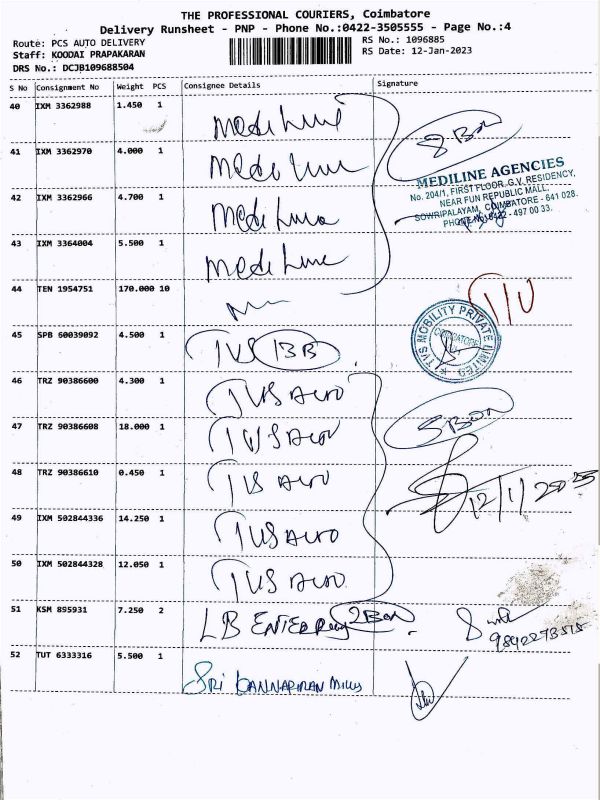 THE PROFESSIONAL COURIERS, Coimbatore
Delivery Runsheet - PNP - Phone No.:0422-3505555 - Page No.:4
Route: PCS AUTO DELIVERY
RS No.: 1096885
Staff: KOODAI PRAPAKARAN
RS Date: 12-Jan-2023
DRS No.: DCJB109688504
S No Consignment No Weight PCS Consignee Details Signature
40 IXM 3362988 1.450 1 Medi Line
8 Box
41 IXM 3362970 4.000 1 Medi Line
MEDILINE AGENCIES
No. 204/1, FIRST FLOOR, G.V. RESIDENCY,
NEAR FUN REPUBLIC MALL,
SOWRIPALAYAM, COIMBATORE - 641 028.
PHONE No. 0422 - 497 00 33.
42 IXM 3362966 4.700 1 Medi Line
43 IXM 3364004 5.500 1 Medi Line
44 TEN 1954751 170.000 10
45 SPB 60039092 4.500 1 TVS
TVS MOBILITY PRIVATE LIMITED
COIMBATORE
46 TRZ 90386600 4.300 1 TVS Auto
47 TRZ 90386608 18.000 1 TVS Auto
5 Box
48 TRZ 90386610 0.450 1 TVS Auto
49 IXM 502844336 14.250 1 TVS Auto
50 IXM 502844328 12.050 1 TVS Auto
51 KSM 895931 7.250 2 LB 2 Box
52 TUT 6333316 5.500 1 SRI KANNAPIRAN Mills